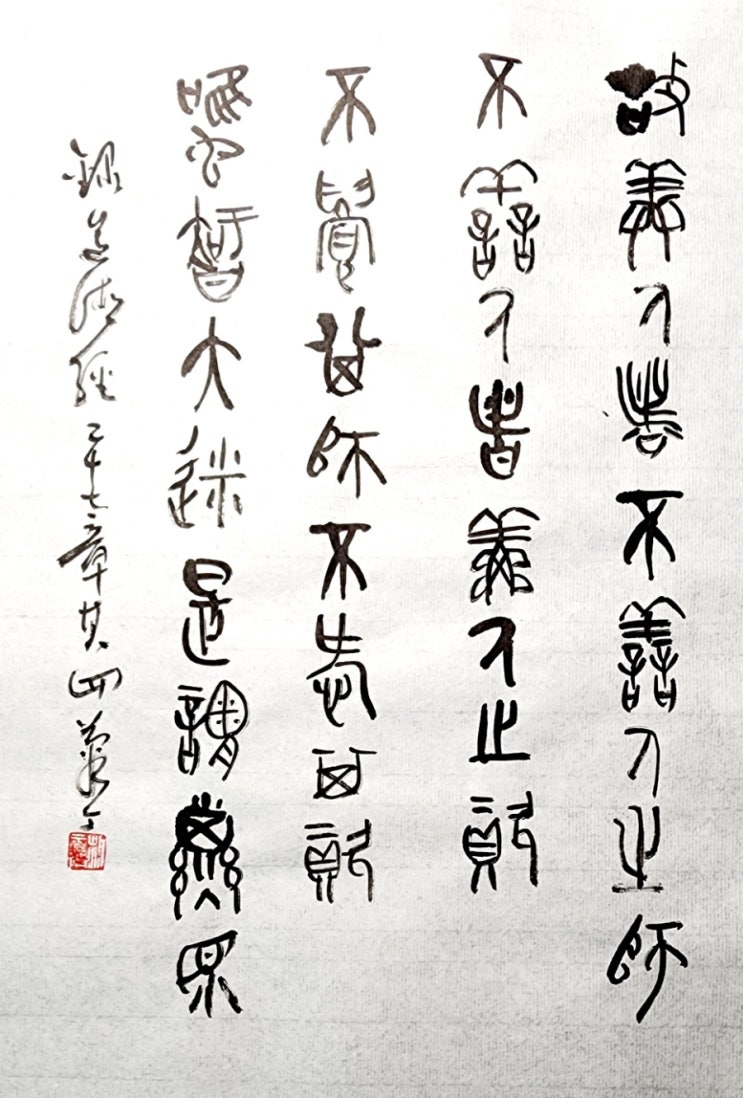 故善人者不善人之師
不善人者善人之資
不貴其師不愛其資
雖智大迷是謂要眇
錄道德經二十七章其四